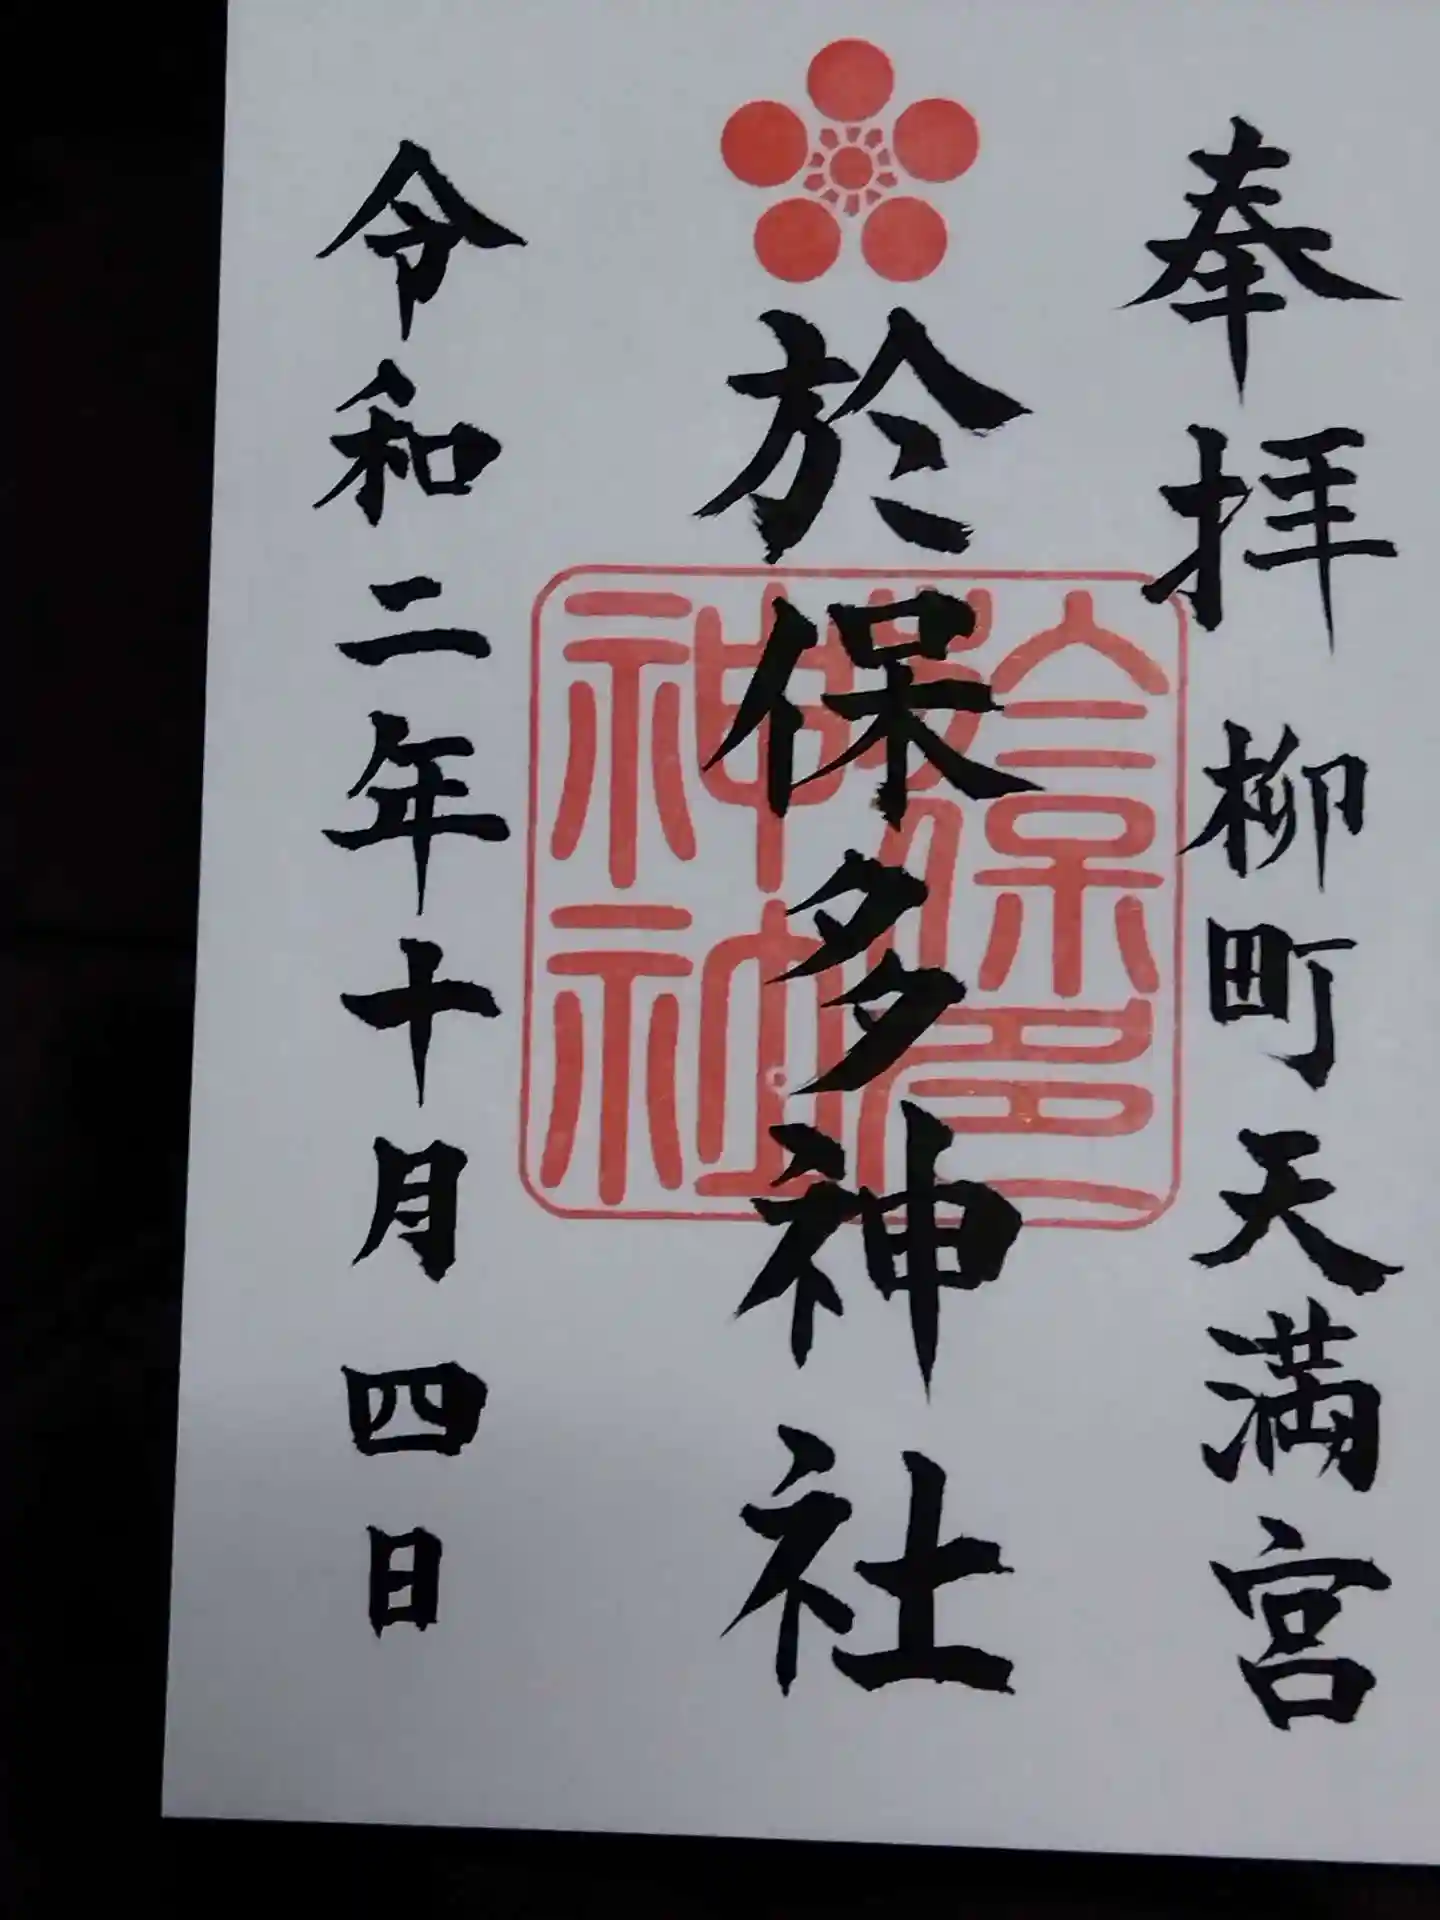 奉拝 柳町天満宮
於保多神社
於保多神社
令和二年十月四日